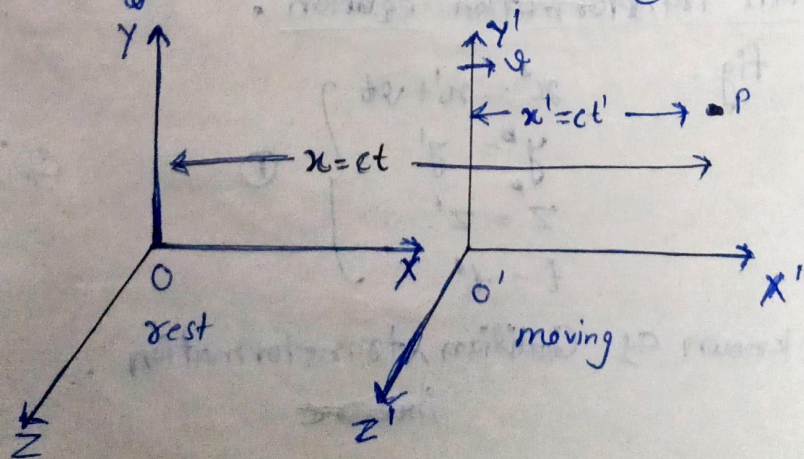 Y
Y'
v
x' = ct'
P
x = ct
O
X
O'
X'
rest
moving
Z
Z'